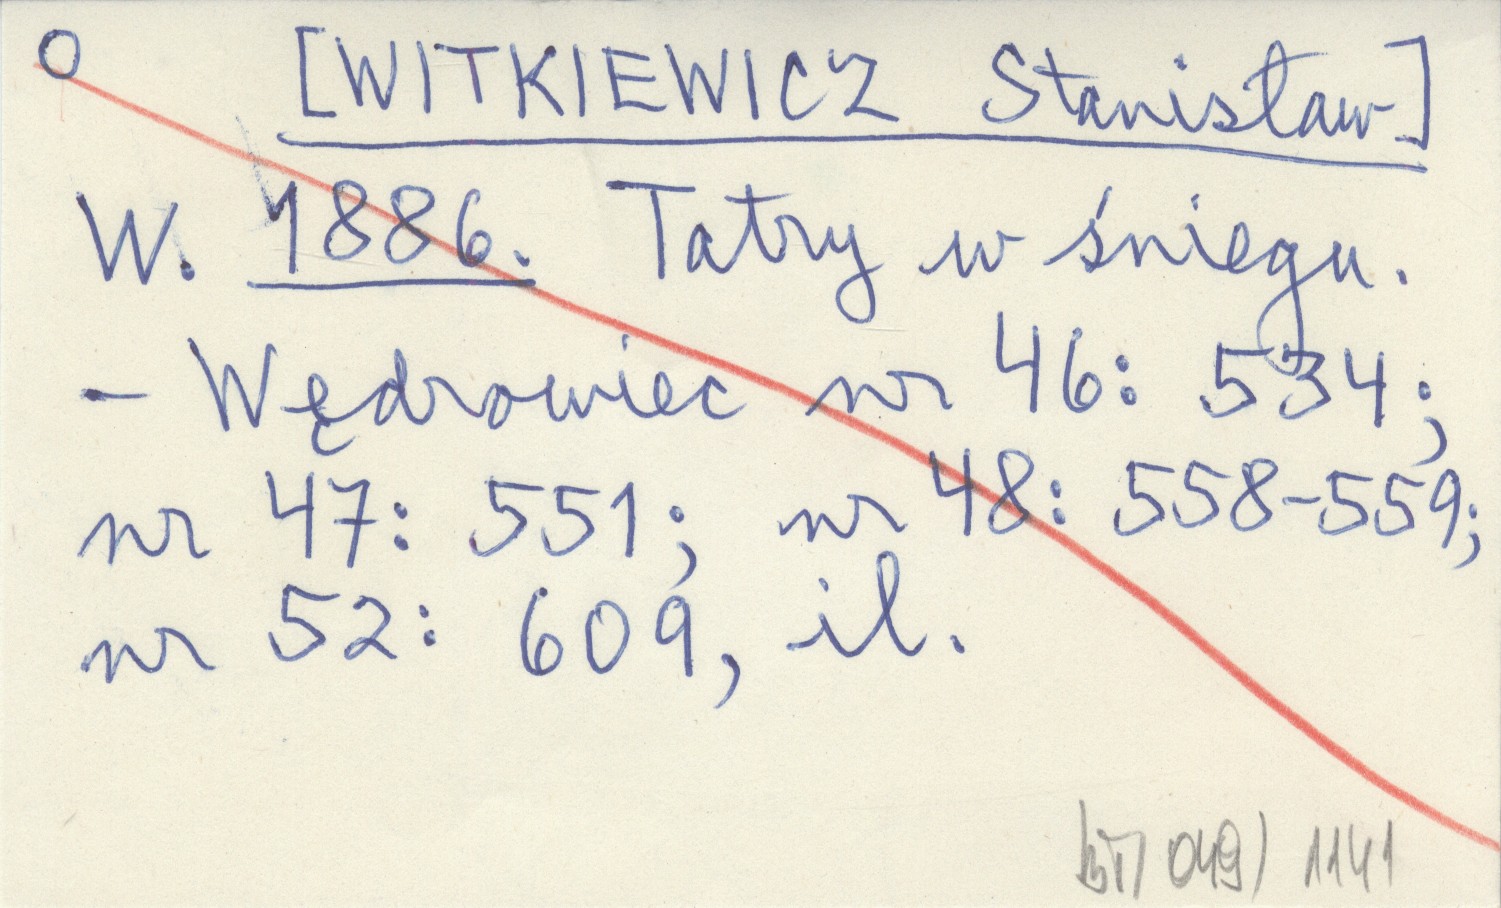 O [WITKIEWICZ Stanisław]
W. 1886. Tatry w śniegu.
- Wędrowiec nr 46: 534;
nr 47: 551; nr 48: 558-559;
nr 52: 609, il.
049) 1141